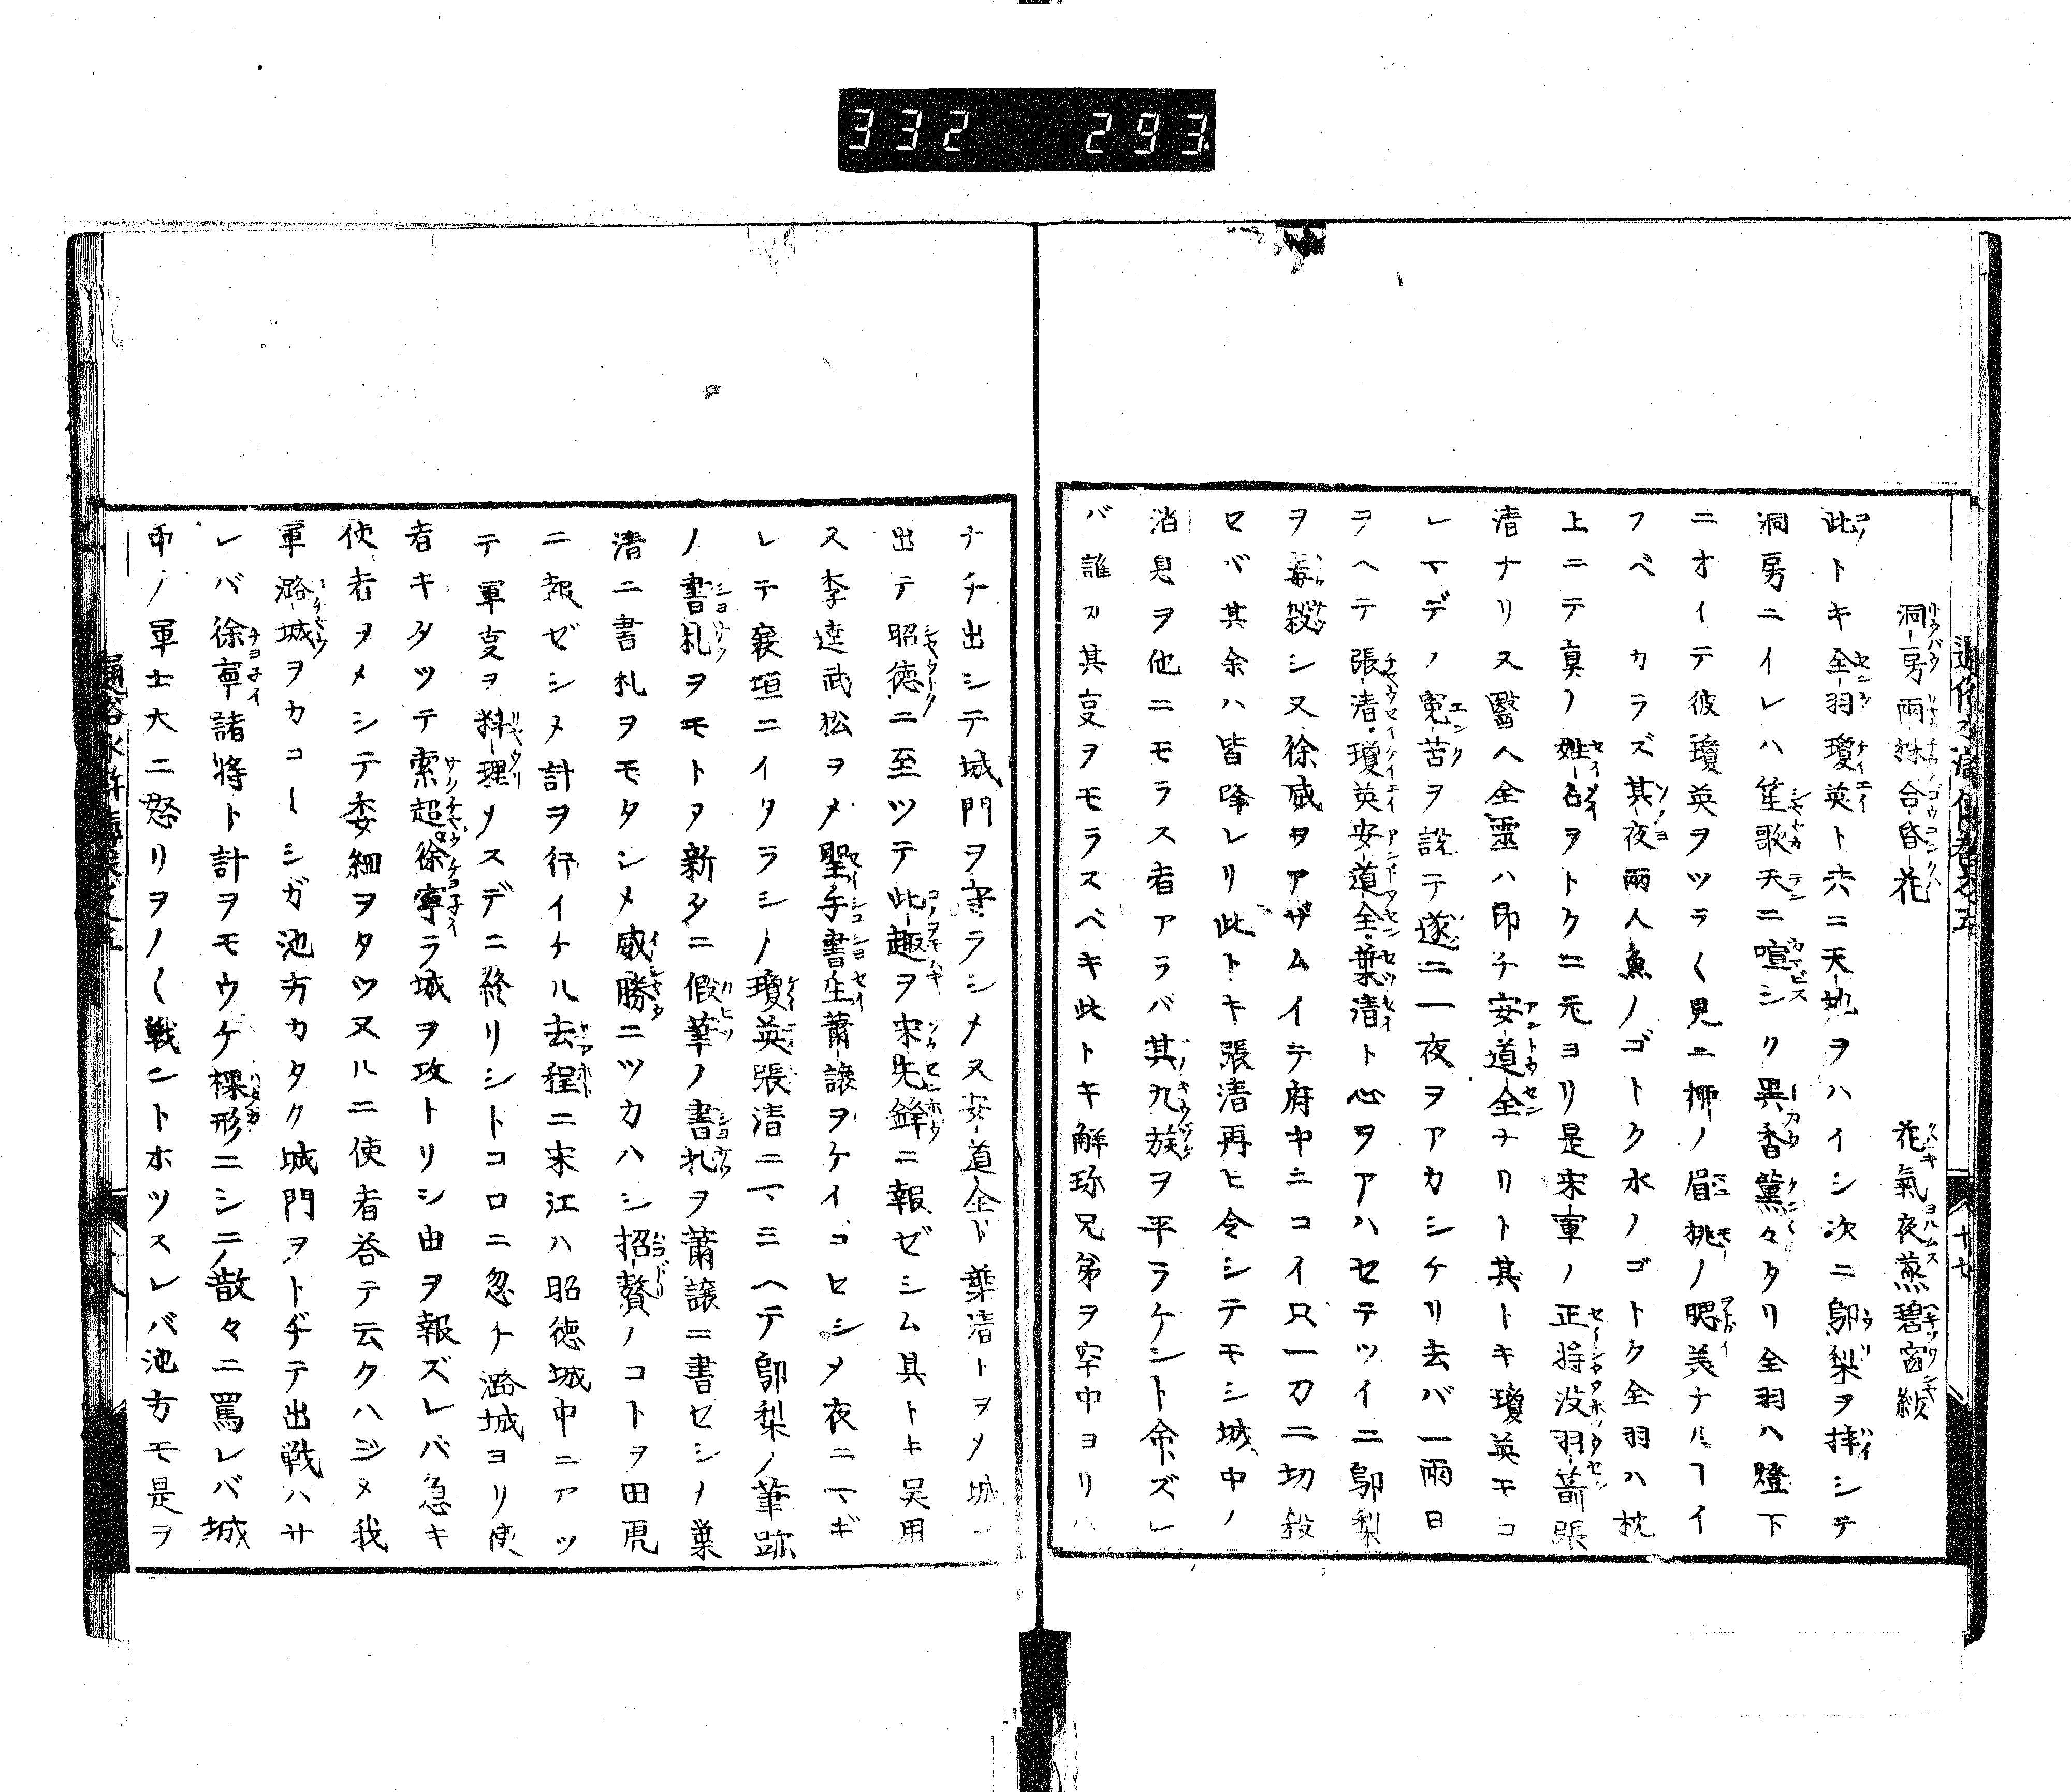 332 293
洞房兩株合昏花 花氣夜蒸碧窗紗
此トキ全羽瓊英ト共ニ天地ヲハイシ次ニ鄔梨ヲ拝シテ
洞房ニイレハ笙歌天ニ喧シク異香薫々タリ全羽ハ燈下
ニオイテ彼瓊英ヲツラ〱見ニ柳ノ眉桃ノ腮美ナルヿイ
フベカラズ其夜兩人魚ノゴトク水ノゴトク全羽ハ枕
上ニテ真ノ姓名ヲトクニ元ヨリ是宋軍ノ正将没羽箭張
清ナリ又醫人全霊ハ即チ安道全ナリト其トキ瓊英モコ
レマデノ冤苦ヲ説テ遂ニ一夜ヲアカシケリ去バ一兩日
ヲヘテ張清瓊英安道全葉清ト心ヲアハセテツイニ鄔梨
ヲ毒殺シ又徐威ヲアザムイテ府中ニコイ只一刀ニ切殺
セバ其余ハ皆降レリ此トキ張清再ヒ令シテモシ城中ノ
消息ヲ他ニモラス者アラバ其九族ヲ平ラケント命ズレ
バ誰カ其夏ヲモラスベキ此トキ解珎兄弟ヲ牢中ヨリハ
ナチ出シテ城門ヲ守ラシメ又安道全ト葉清トヲメ城
出テ昭徳ニ至ツテ此趣ヲ宋先鋒ニ報ゼシム其トキ吴用
又李逵武松ヲメ聖手書生蕭譲ヲケイゴセシメ夜ニマギ
レテ襄垣ニイタラシメ瓊英張清ニマミヘテ鄔梨ノ筆跡
ノ書札ヲモトメ新タニ假筆ノ書札ヲ蕭譲ニ書セシメ葉
清ニ書札ヲモタシメ威勝ニツカハシ招贅ノコトヲ田虎
ニ報ゼシメ計ヲ行イケル去程ニ宋江ハ昭徳城中ニアツ
テ軍夏ヲ料理メスデニ終リシトコロニ忽チ潞城ヨリ使
者キタツテ索超徐寧ラ城ヲ攻トリシ由ヲ報ズレバ急キ
使者ヲメシテ委細ヲタツヌルニ使者荅テ云クハジメ我
軍潞城ヲカコミシガ池方カタク城門ヲトヂテ出戦ハサ
レバ徐寧諸将ト計ヲモウケ裸形ニシテ散々ニ罵レバ城
中ノ軍士大ニ怒リヲノ〱戦ントホツスレバ池方モ是ヲ
十七